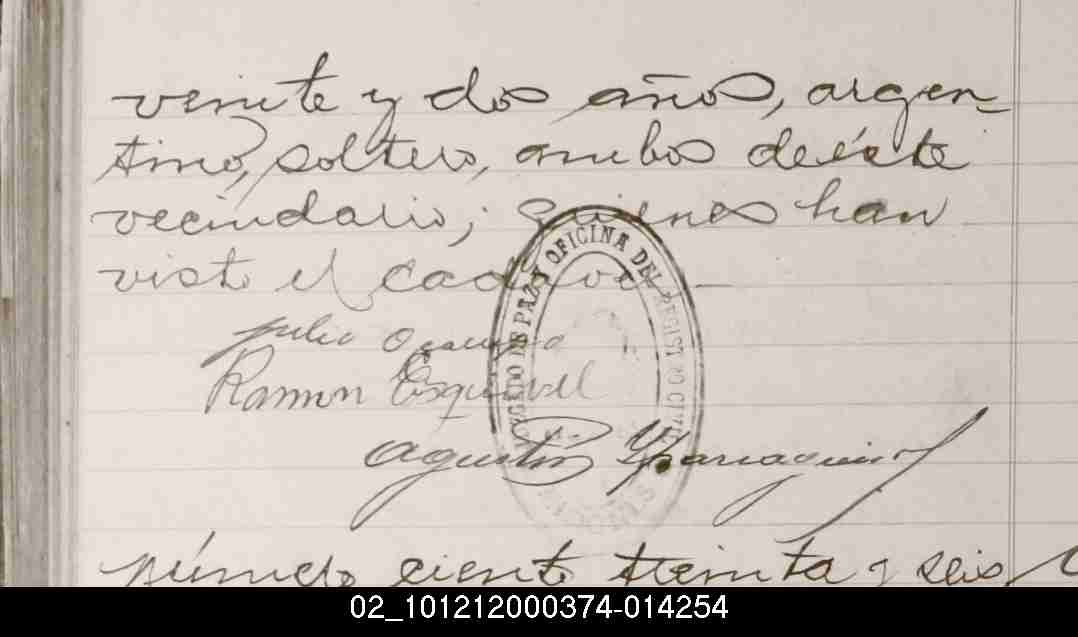 veinte y dos años, argen-
tino, soltero, ambos de éste
vecindario; quienes han
visto el cadáver.—
Julio Ocampo
Ramon Esquivel
Agustin Yparraguirre
JUZGADO DE PAZ Y OFICINA DEL REGISTRO CIVIL
número ciento treinta y seis
02_101212000374-014254